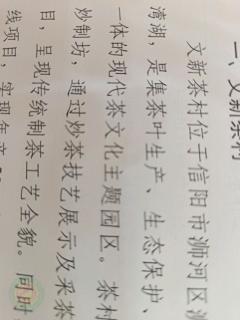 一、文新茶村
文新茶村位于信阳市浉河区浉
湾湖，是集茶叶生产、生态保护、
一体的现代茶文化主题园区。茶村
炒制坊，通过炒茶技艺展示及采茶
目，呈现传统制茶工艺全貌。同时
线项目，实现年产